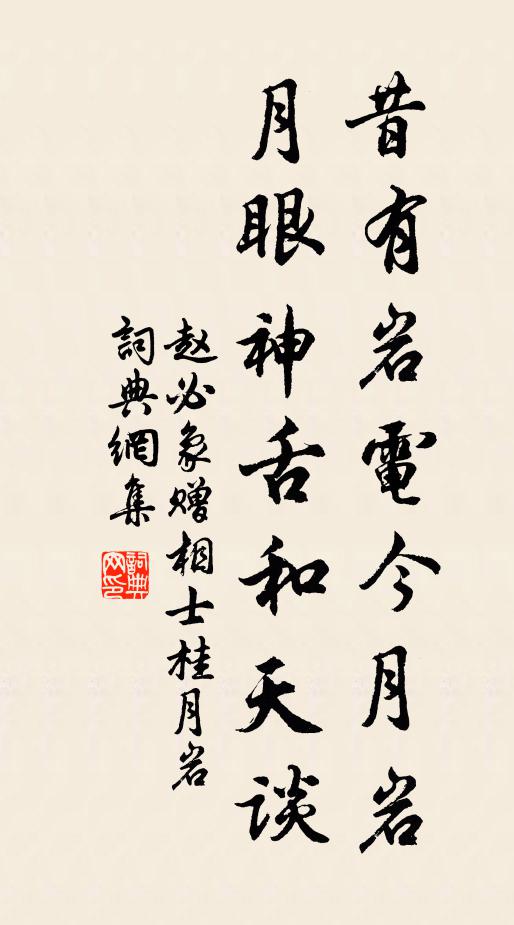 昔有岩電今月岩
月眼神舌和天谈
赵必象赠相士桂月岩
詞典網集
詞典网印